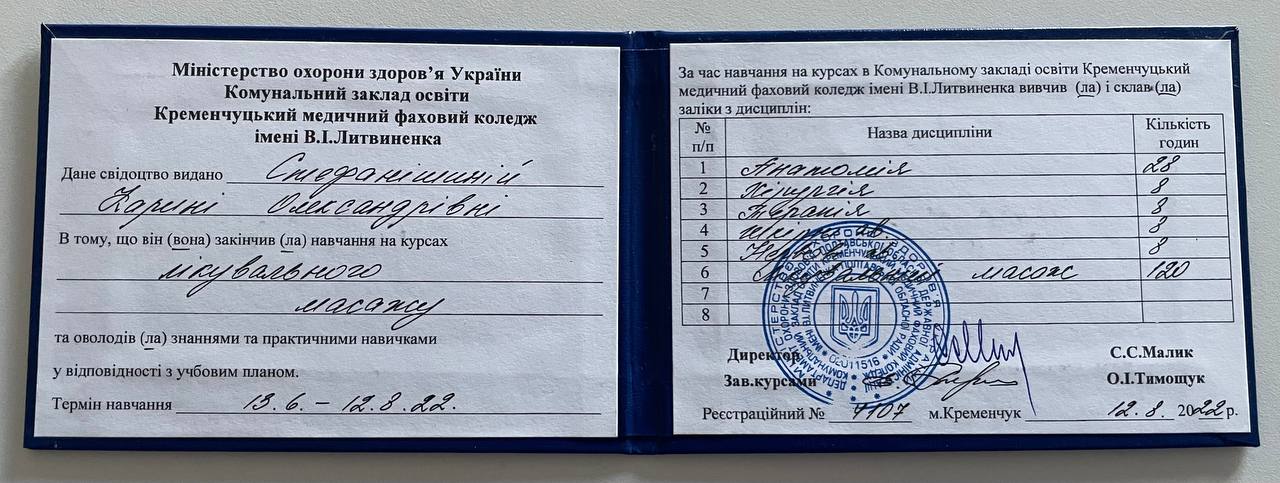 Міністерство охорони здоров’я України
Комунальний заклад освіти
Кременчуцький медичний фаховий коледж
імені В.І.Литвиненка
Дане свідоцтво видано Стефанішиній
Карині Олександрівні
В тому, що він (вона) закінчив (ла) навчання на курсах
лікувального
масажу
та оволодів (ла) знаннями та практичними навичками
у відповідності з учбовим планом.
Термін навчання 13.6. – 12.8.22.
За час навчання на курсах в Комунальному закладі освіти Кременчуцький
медичний фаховий коледж імені В.І.Литвиненка вивчив (ла) і склав (ла)
заліки з дисциплін:
№ п/п Назва дисципліни Кількість годин
1 Анатомія 28
2 Хірургія 8
3 Терапія 8
4 8
5 8
6 масаж 120
7
8
Директор С.С.Малик
Зав.курсами О.І.Тимощук
Реєстраційний № 4107 м.Кременчук 12.8. 2022 р.
02011516